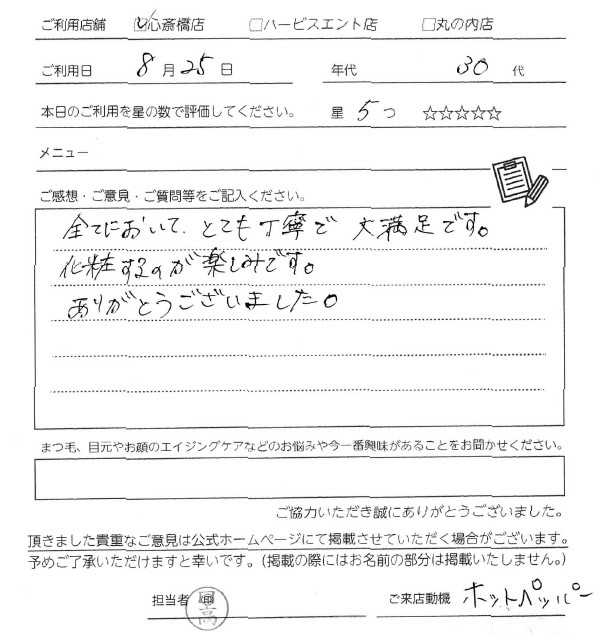 ご利用店舗 ☑心斎橋店 □ハービスエント店 □丸の内店
ご利用日 8月25日 年代 30代
本日のご利用を星の数で評価してください。 星 5つ ☆☆☆☆☆
メニュー
ご感想・ご意見・ご質問等をご記入ください。
全てにおいて、とても丁寧で 大満足です。
化粧するのが楽しみです。
ありがとうございました。
まつ毛、目元やお顔のエイジングケアなどのお悩みや今一番興味があることをお聞かせください。
ご協力いただき誠にありがとうございました。
頂きました貴重なご意見は公式ホームページにて掲載させていただく場合がございます。
予めご了承いただけますと幸いです。(掲載の際にはお名前の部分は掲載いたしません。)
担当者 印 ご来店動機 ホットペッパー